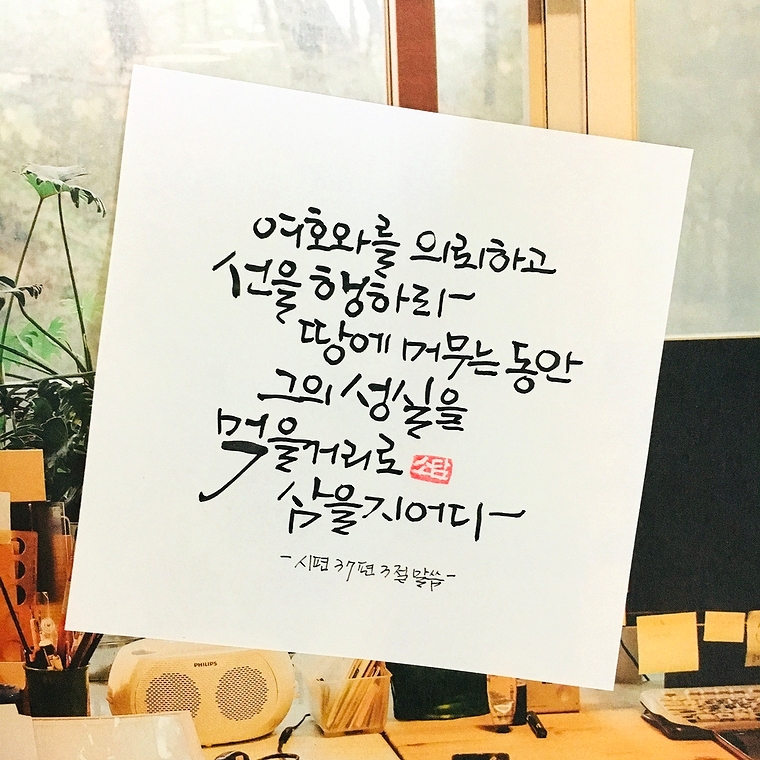 여호와를 의뢰하고
선을 행하리
땅에 머무는 동안
그의 성실을
먹을거리로
소담
삼을지어다
-시편 37편 3절 말씀-
PHILIPS